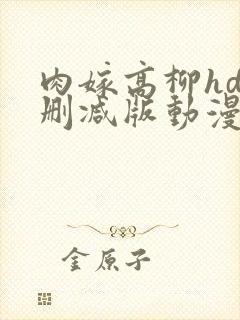 肉嫁高柳hd
删减版動漫
金原子